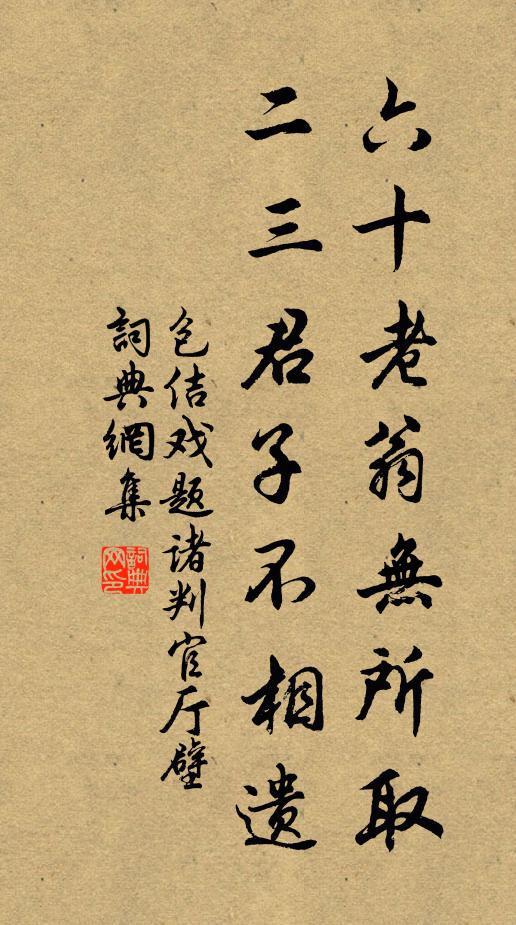 六十老翁無所取
二三君子不相遗
包佶戏题诸判官厅壁
詞典網集
詞典
网印